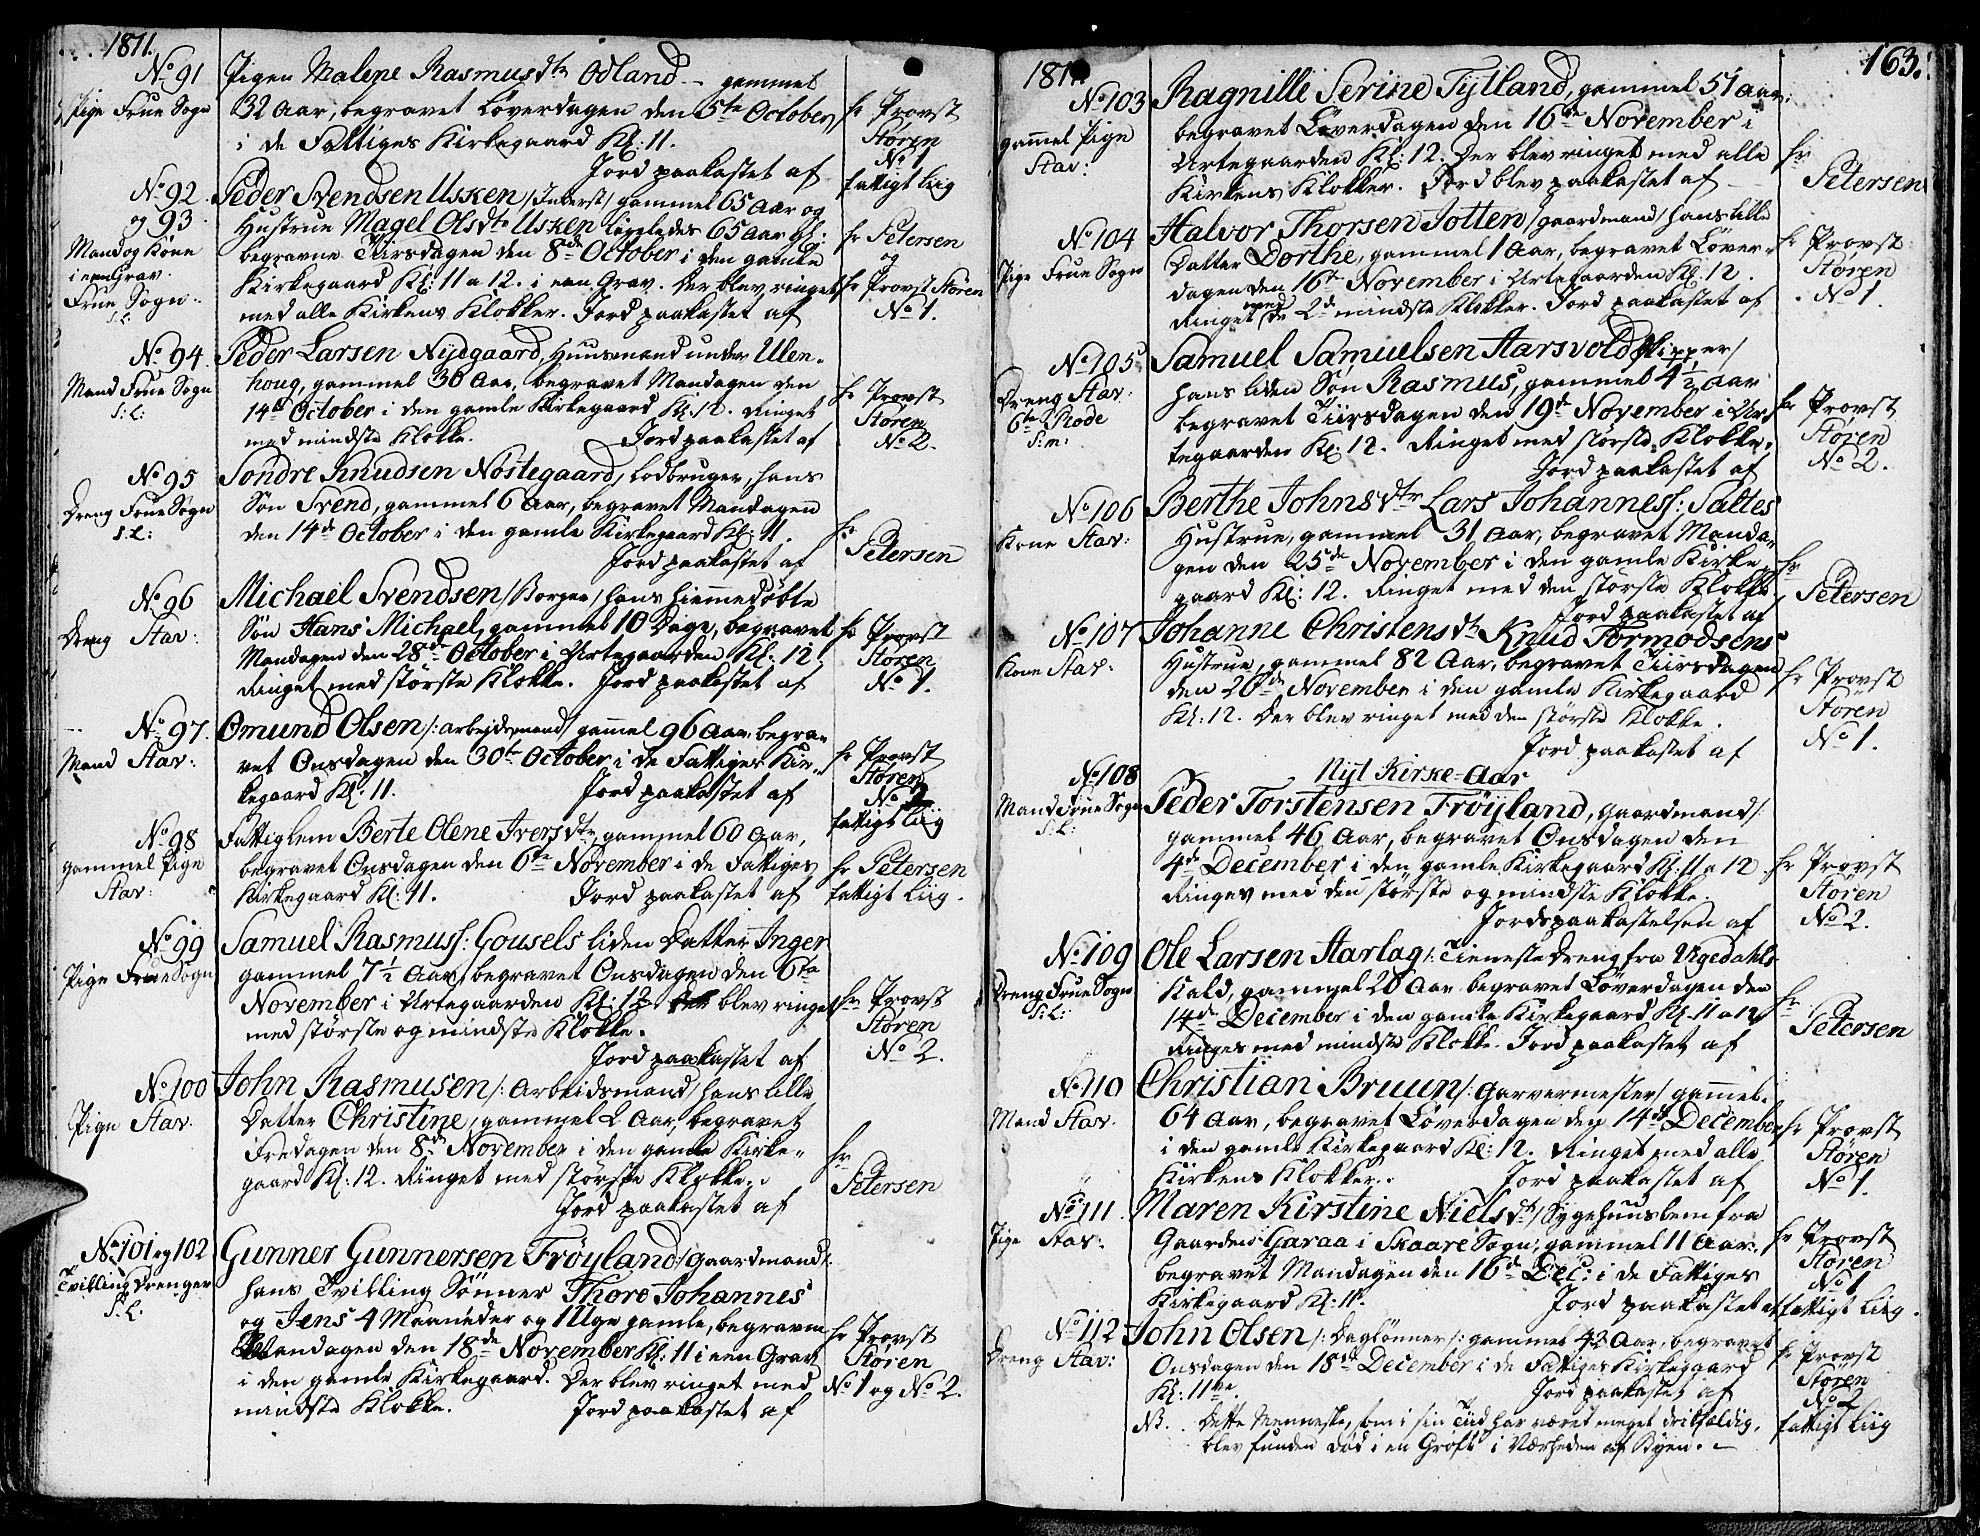 1811.
No 91
Pige Frue Sogn
Pigen Malene Rasmusdtr Odland - gammel
32 Aar, begravet Løverdagen den 5te October
i de Fattiges Kirkegaard Kl: 11.
Jord paakastet af
hr Provst
Støren
No 1
fattigt Liig
No 92
og 93
Mand og Kone
i een Grav.
Frue Sogn
S: L:
Peder Svendsen Usken /Inderst/ gammel 65 Aar og
Hustrue Magel Olsdtr Usken ligeledes 65 Aar gl.
begravne Tiirsdagen den 8de October i den gamle
Kirkegaard Kl: 11 a 12. i een Grav. Der blev ringet
med alle Kirkens Klokker. Jord paakastet af
hr Petersen
og
hr Provst Støren
No 1.
No 94.
Mand Frue Sogn
S: L:
Peder Larsen Nydgaard, Huusmand under Ulen-
houg, gammel 30 Aar, begravet Mandagen den
14de October i den gamle Kirkegaard Kl: 12. Ringet
med mindste Klokke. Jord paakastet af
hr Provst
Støren
No 2.
No 95
Dreng Frue Sogn
S: L:
Søndre Knudsen Nøstegaard, Lodbruger, hans
Søn Svend, gammel 6 Aar, begravet Mandagen
den 14de October i den gamle Kirkegaard Kl: 11.
Jord paakastet af
hr
Petersen
No 96
Dreng Stav:
Michael Svendsen /Borger/ hans hiemmedøbte
Søn Hans Michael, gammel 10 Dage, begravet
Mandagen den 28de October i Urtegaarden Kl: 12.
Ringet med største Klokke. Jord paakastet af
hr Provst
Støren
No 1.
No 97.
Mand Stav:
Omund Olsen /:arbeidsmand/ gam̄el 96 Aar, begra-
vet Onsdagen den 30te October i de Fattiges Kir-
kegaard Kl: 11. Jord paakastet af
hr Provst
Støren
No 2
fattigt Liig
No 98
gammel Pige
Stav:
Fattiglem Berte Olene Iversdtr gammel 60 Aar,
begravet Onsdagen den 6te November i de Fattiges
Kirkegaard Kl: 11. Jord paakastet af
hr Petersen
fattigt Liig.
No 99
Pige Frue Sogn
Samuel Rasmuss: Gousels liden Datter Inger
gammel 7½ Aar, begravet Onsdagen den 6te
November i Urtegaarden Kl: 12 Der blev ringet
med største og mindste Klokke.
Jord paakastet af
hr Provst
Støren
No 2.
No 100
Pige Stav.
John Rasmusen /:Arbeidsmand/ hans lille
Datter Christine, gammel 2 Aar, begravet
Fredagen den 8de November i den gamle Kirke-
gaard Kl: 12. Ringet med største Klokke.
Jord paakastet af
hr
Petersen
No 101 og 102
Tvilling Drenger
S: L:
Gunner Gunnersen Frøyland /gaardmand/
hans Tvilling Sønner Thore Johannes
og Jens 4 Maaneder og 1 Uge gamle, begravne
Mandagen den 18de November Kl: 11 i een Grav
i den gamle Kirkegaard. Der blev ringet med
mindste Klokke. Jord paakastet af
hr Provst
Støren
No 1 og No 2.
181
163.
No 103
gam̄el Pige
Stav:
Ragnille Serine Tylland, gammel 51 Aar,
begravet Løverdagen den 16de November i
Urtegaarden Kl: 12. Der blev ringet med alle
Kirkens Klokker. Jord blev paakastet af
hr
Petersen
No 104
Pige Frue Sogn
Halvor Thorsen Jotten /gaardmand/ hans lille
Datter Dorthe, gammel 1 Aar, begravet Løver-
dagen den 16de November i Urtegaarden Kl. 12.
Ringet med de 2de mindste Klokker. Jord paakastet af
hr Provst
Støren
No 1.
No 105
Dreng Stav:
6te Rode
S: m:
Samuel Samuelsen Aarsvold /Skipper/
hans liden Søn Rasmus, gammel 4½ Aar
begravet Tiirsdagen den 19de November i Ur-
tegaarden Kl: 12. Ringet med største Klokke,
Jord paakastet af
hr Provst
Støren
No 2.
No 106
Kone Stav:
Berthe Johnsdtr Lars Johanness: Saltes
Hustrue, gammel 31 Aar, begravet Manda-
gen den 25de November i den gamle Kirke-
gaard Kl: 12. Ringet med den største Klokke
Jord paakastet af
hr
Petersen
No 107
Kone Stav:
Johanne Christensdtr Knud Tormodsens
Hustrue, gammel 82 Aar, begravet Tiirsdagen
den 26de November i den gamle Kirkegaard
Kl: 12. Der blev ringet med den største Klokke.
Jord paakastet af
hr Provst
Støren
No 1.
Nyt Kirke-Aar
No 108
Mand Frue Sogn
S: L:
Peder Torstensen Frøyland, Gaardmand/:
gammel 46 Aar, begravet Onsdagen den
4de December i den gamle Kirkegaard Kl: 11 a 12
Ringes med den største og mindste Klokke.
Jordspaakastelsen af
hr Provst
Støren
No 2.
No 109
Dreng Frue Sogn
S: L:
Ole Larsen Aarlag /:Tieneste Dreng fra Vigedahls
Kald, gammel 20 Aar begravet Løverdagen den
14de December i den gamle Kirkegaard Kl. 11 a 12
Ringes med mindste Klokke. Jord paakastet af
hr
Petersen
No 110
Mand Stav.
Christian Bruun /:Garvermester/ gam̄el.
64 Aar, begravet Løverdagen den 14de December
i den gamle Kirkegaard Kl: 12. Ringet med alle
Kirkens Klokker. Jord paakastet af
hr Provst
Støren
No 1.
No 111
Pige Stav:
Maren Kirstine Nielsdtr /Sygehuuslem fra
Gaarden Garaa i Skaare Sogn, gammel 11 Aar,
begravet Mandagen den 16de Dec: i de Fattiges
Kirkegaard Kl: 11. Jord paakastet af
hr Provst
Støren
No 1
fattigt Liig.
No 112
Dreng Stav:
John Olsen /:Daglønner/: gammel 42 Aar, begravet
Onsdagen den 18de December i de Fattiges Kirkegaard
Kl: 11ve. Jord paakastet af
NB. Dette Menneske, som i sin Tiid har været meget drikfældig,
blev funden død i en Grøft i Nærheden af Byen.
hr Provst
Støren
No 2
fattigt Liig